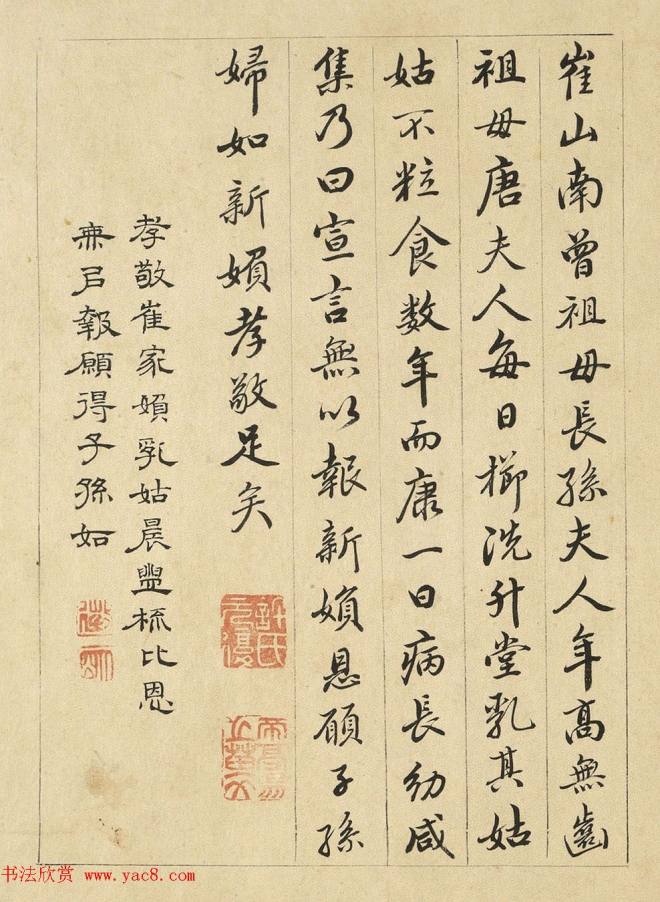 崔山南曾祖母長孫夫人年高無齒
祖母唐夫人每日櫛洗升堂乳其姑
姑不粒食数年而康一日病長幼咸
集乃曰宣言無以報新媍恩願子孫
婦如新媍孝敬足矣
孝敬崔家媍乳姑晨盥梳比恩
無㠯報願得子孫如
許氏
書法欣赏 www.yac8.com